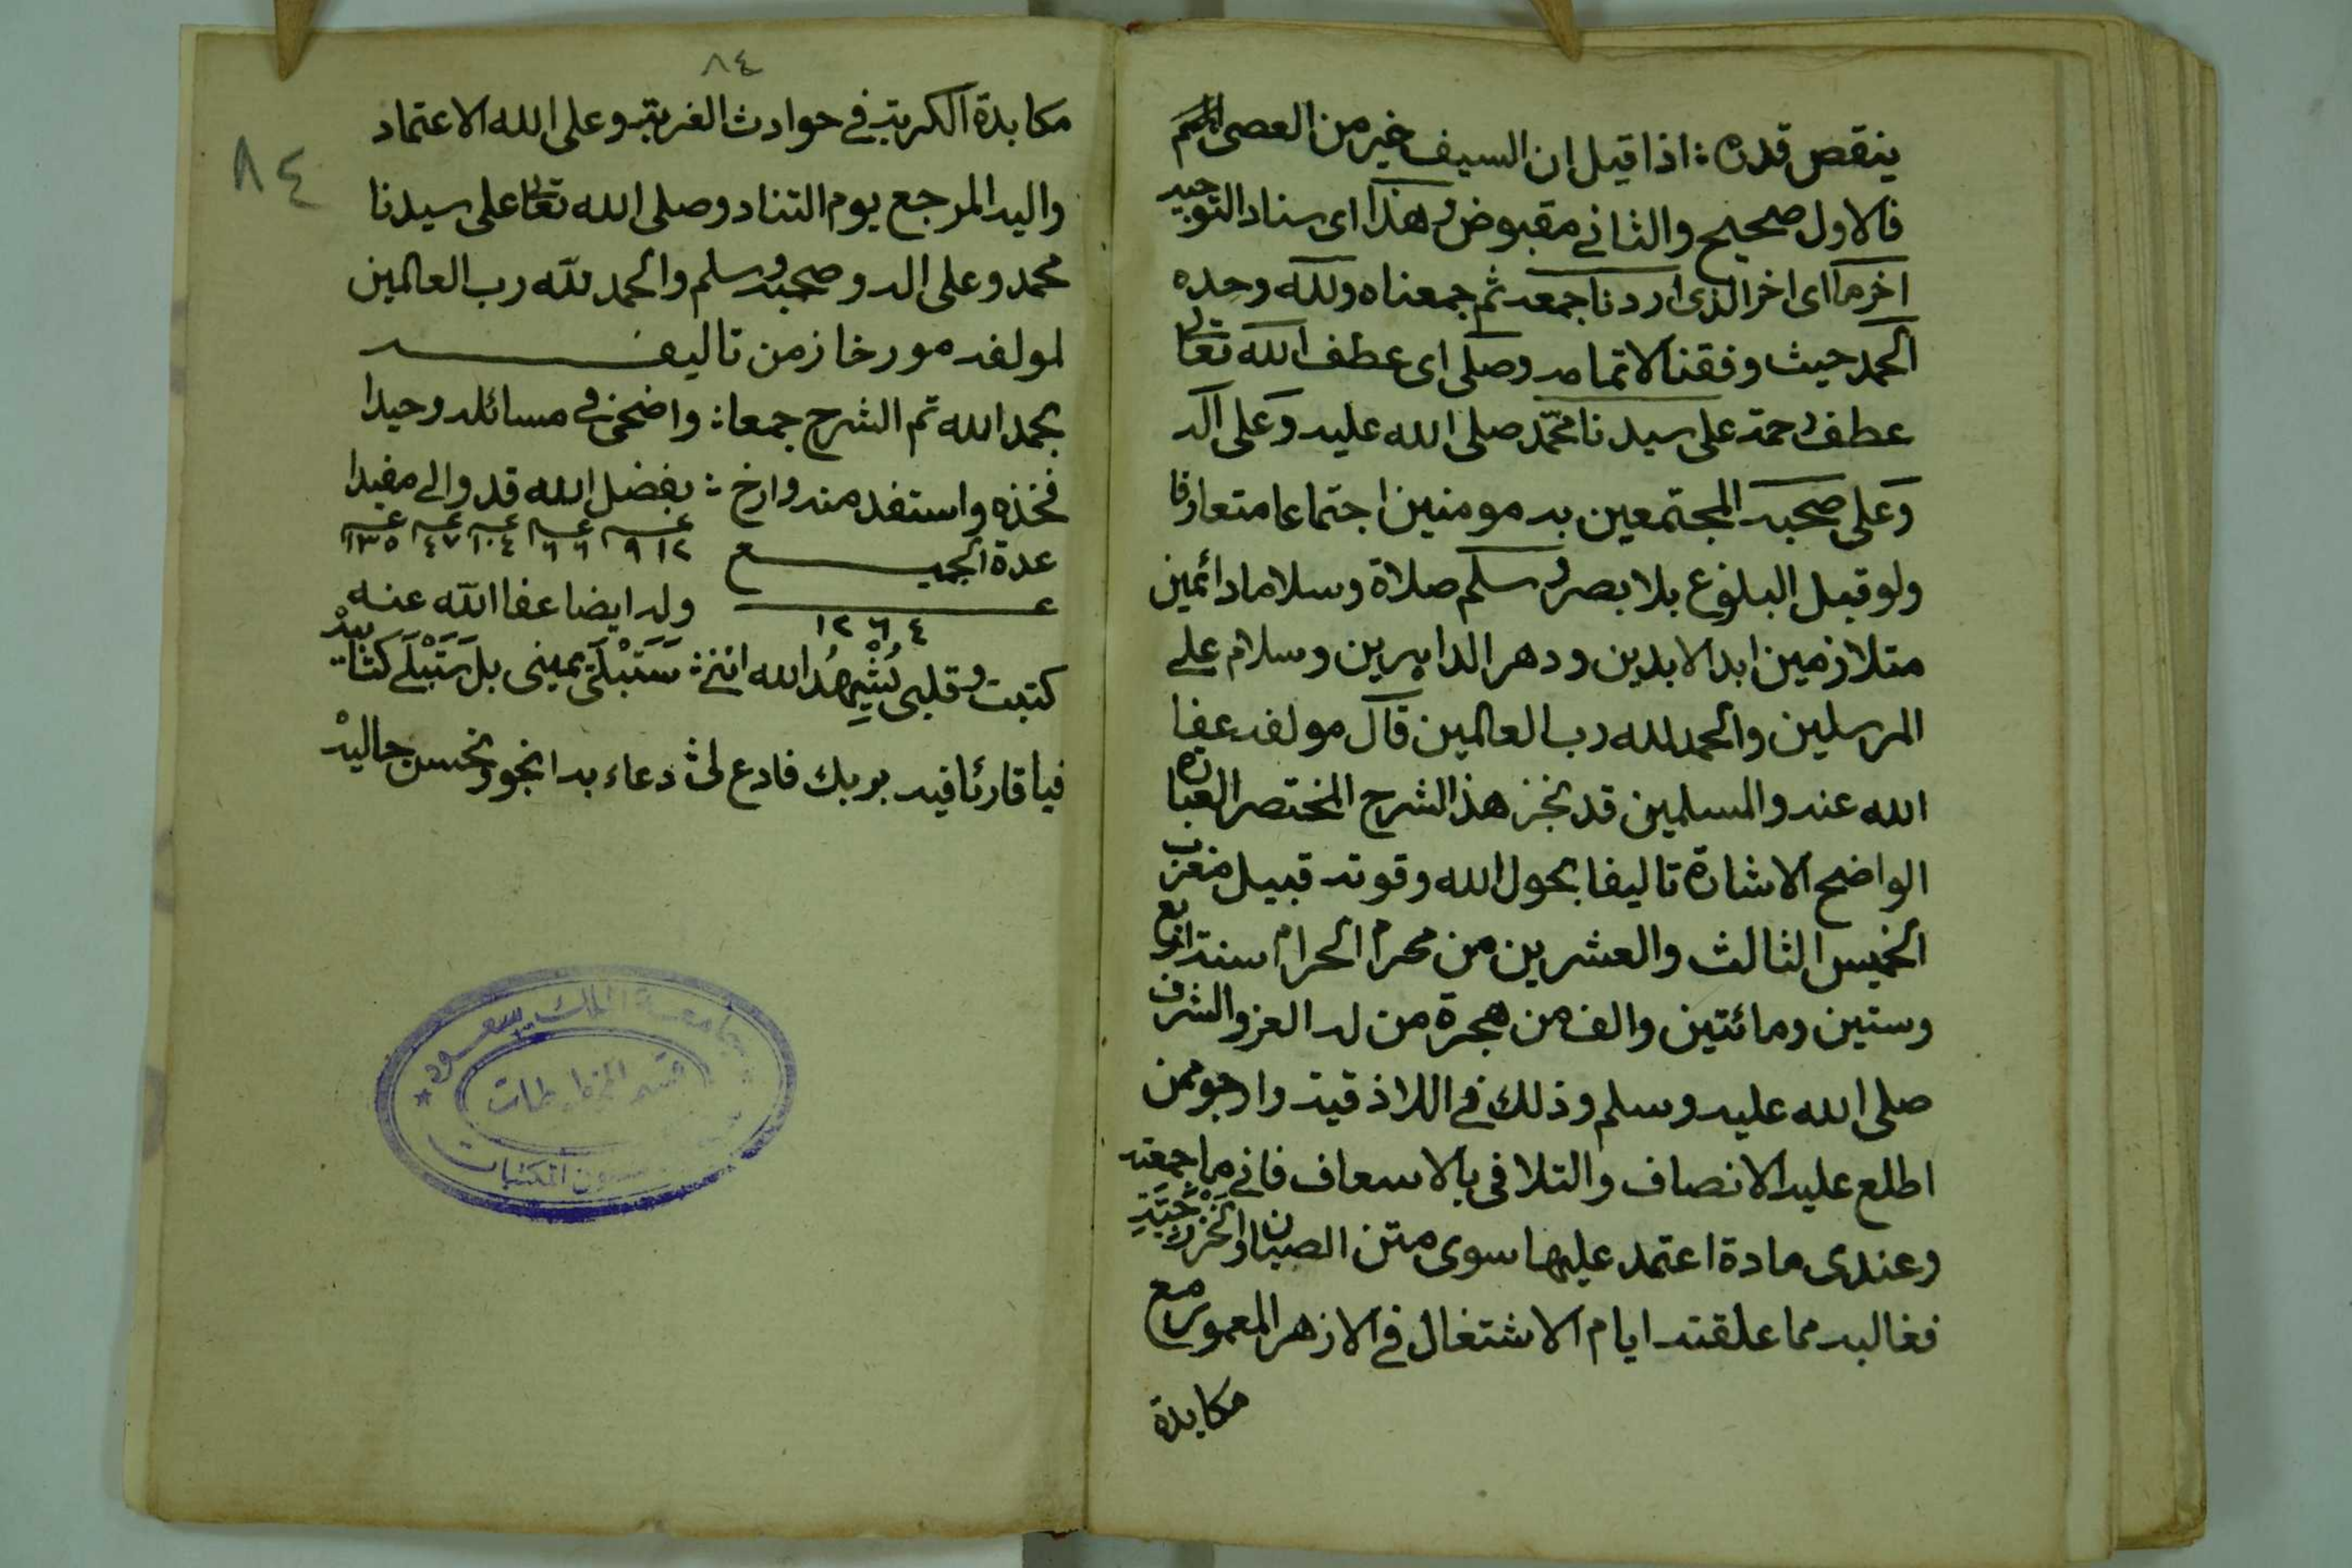 ينقص قدره : اذا قيل ان السيف خير من العصى
فالاول صحيح والثانى مقبوض وهذا اى سناد التوجيه
اخر ما اى اخر الذى اردنا جمعه ثم جمعناه ولله وحده
الحمد حيث وفقنا لاتمامه وصلى اى عطف الله تعالى
عطف رحمة على سيدنا محمد صلى الله عليه وعلى اله
وعلى صحبه المجتمعين به مومنين اجتماعا متعارفا
ولو قبل البلوغ بلا بصر وسلم صلاة وسلاما دائمين
متلازمين ابد الابدين ودهر الداهرين وسلام على
المرسلين والحمد لله رب العالمين قال مولفه عفا
الله عنه والمسلمين قد نجز هذا الشرح المختصر العبارة
الواضح الاشارة تاليفا بحول الله وقوته قبيل مغرب
الخميس الثالث والعشرين من محرم الحرام سنة اربع
وستين ومائتين والف من هجرة من له العز والشرف
صلى الله عليه وسلم وذلك فى اللاذقية وارجو ممن
اطلع عليه الانصاف والتلافى بالاسعاف فانى ما جمعته
وعندى مادة اعتمد عليها سوى متن الصبان والخزرجية
فغالبه مما علقته ايام الاشتغال فى الازهر المعمور مع
مكابدة
٨٤
٨٤
مكابدة الكربة فى حوادث الغربة وعلى الله الاعتماد
واليه المرجع يوم التناد وصلى الله تعالى على سيدنا
محمد وعلى اله وصحبه وسلم والحمد لله رب العالمين
لمولفه مورخا زمن تاليفه
بحمد الله تم الشرح جمعا : واضحى فى مسائله وحيدا
فخذه واستفد منه وارخ : بفضل الله قد والى مفيدا
٩١٢ ٦٦ ١٠٤ ٤٧ ١٣٥
عدة الجميع
١٢٦٤
وله ايضا عفا الله عنه
كتبت وقلبى يُشْهِدُ الله اننى : سَتَبْلَى يمينى بل سَتَبْلَى كتابيه
فيا قارئا فيه بربك فادع لى : دعاء به انجو وتحسن حاليه
جامعة الملك سعود
قسم المخطوطات
شؤون المكتبات